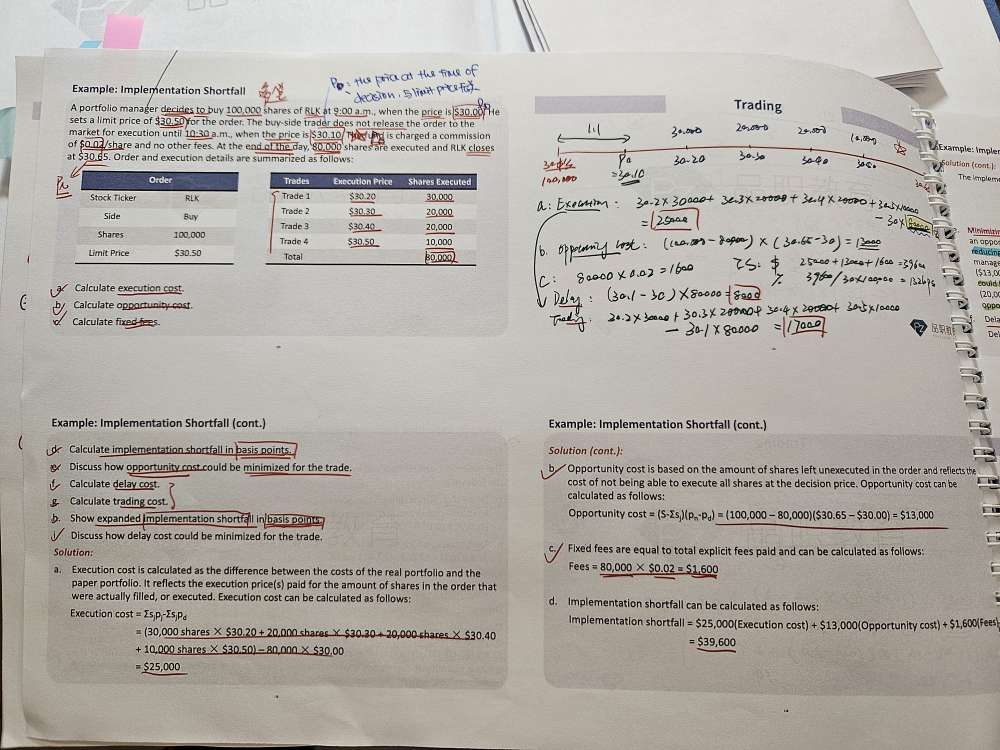 Example: Implementation Shortfall
P₀: the price at the time of
decision.
A portfolio manager decides to buy 100,000 shares of RLK at 9:00 a.m., when the price is $30.00. He
sets a limit price of $30.50 for the order. The buy-side trader does not release the order to the
market for execution until 10:30 a.m., when the price is $30.10. is charged a commission
of $0.02/share and no other fees. At the end of the day, 80,000 shares are executed and RLK closes
at $30.65. Order and execution details are summarized as follows:
Order
Stock Ticker RLK
Side Buy
Shares 100,000
Limit Price $30.50
Trades Execution Price Shares Executed
Trade 1 $30.20 30,000
Trade 2 $30.30 20,000
Trade 3 $30.40 20,000
Trade 4 $30.50 10,000
Total 80,000
a. Calculate execution cost.
b. Calculate opportunity cost.
c. Calculate fixed fees.
Trading
30.000 20.000 20.000 10.000
30.20 30.30 30.40 30.50
100,000
=30.10
a: Execution: 30.2×30000+ 30.3×20000+ 30.4×20000+30.5×10000
- 30×80000
= 25000
b. opportunity cost: (100.000-80000) × (30.65-30) = 13000
C: 80000×0.02=1600
IS: $ 25000+13000+1600=39600
% 39600/30×100000=132bps
Delay: (30.1-30)×80000=8000
Trading: 30.2×30000+30.3×20000+30.4×20000+30.5×10000
- 30.1×80000 = 17000
Example: Implementation Shortfall (cont.)
d. Calculate implementation shortfall in basis points.
e. Discuss how opportunity cost could be minimized for the trade.
f. Calculate delay cost.
g. Calculate trading cost.
h. Show expanded implementation shortfall in basis points.
i. Discuss how delay cost could be minimized for the trade.
Solution:
a. Execution cost is calculated as the difference between the costs of the real portfolio and the
paper portfolio. It reflects the execution price(s) paid for the amount of shares in the order that
were actually filled, or executed. Execution cost can be calculated as follows:
Execution cost = Σsⱼpⱼ-Σsⱼp_d
= (30,000 shares × $30.20 + 20,000 shares × $30.30 + 20,000 shares × $30.40
+ 10,000 shares × $30.50) – 80,000 × $30.00
= $25,000
Example: Implementation Shortfall (cont.)
Solution (cont.):
b. Opportunity cost is based on the amount of shares left unexecuted in the order and reflects the
cost of not being able to execute all shares at the decision price. Opportunity cost can be
calculated as follows:
Opportunity cost = (S-Σsⱼ)(pₙ-p_d) = (100,000 – 80,000)($30.65 – $30.00) = $13,000
c. Fixed fees are equal to total explicit fees paid and can be calculated as follows:
Fees = 80,000 × $0.02 = $1,600
d. Implementation shortfall can be calculated as follows:
Implementation shortfall = $25,000(Execution cost) + $13,000(Opportunity cost) + $1,600(Fees)
= $39,600
Solution (cont.)